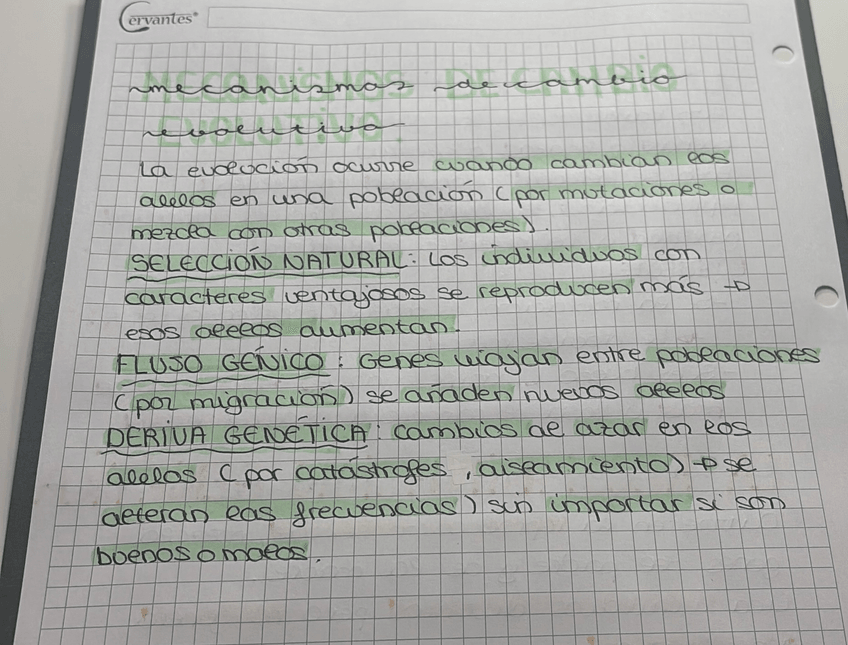 Cervantes
mecanismos de cambio
evolutivo
La evolución ocurre cuando cambian los
alelos en una población (por mutaciones o
mezcla con otras poblaciones).
SELECCIÓN NATURAL: Los individuos con
caracteres ventajosos se reproducen más →
esos alelos aumentan.
FLUJO GÉNICO: Genes viajan entre poblaciones
(por migración) se añaden nuevos alelos
DERIVA GENÉTICA: cambios de azar en los
alelos (por catástrofes, aislamiento) → se
alteran las frecuencias) sin importar si son
buenos o malos.